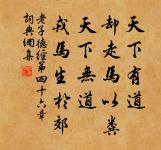 天下有道
却走馬以糞
天下無道
戎馬生於郊
老子德經第四十六章
詞典網集